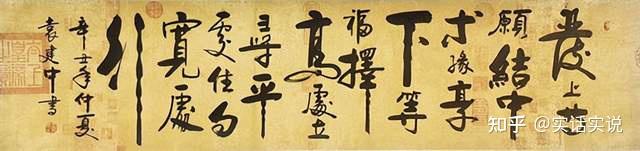 發上等
願結中
等緣享
下等
福擇
高處立
尋平
處住向
寬處
行
辛丑年仲夏
袁建中書
知乎 @实话实说